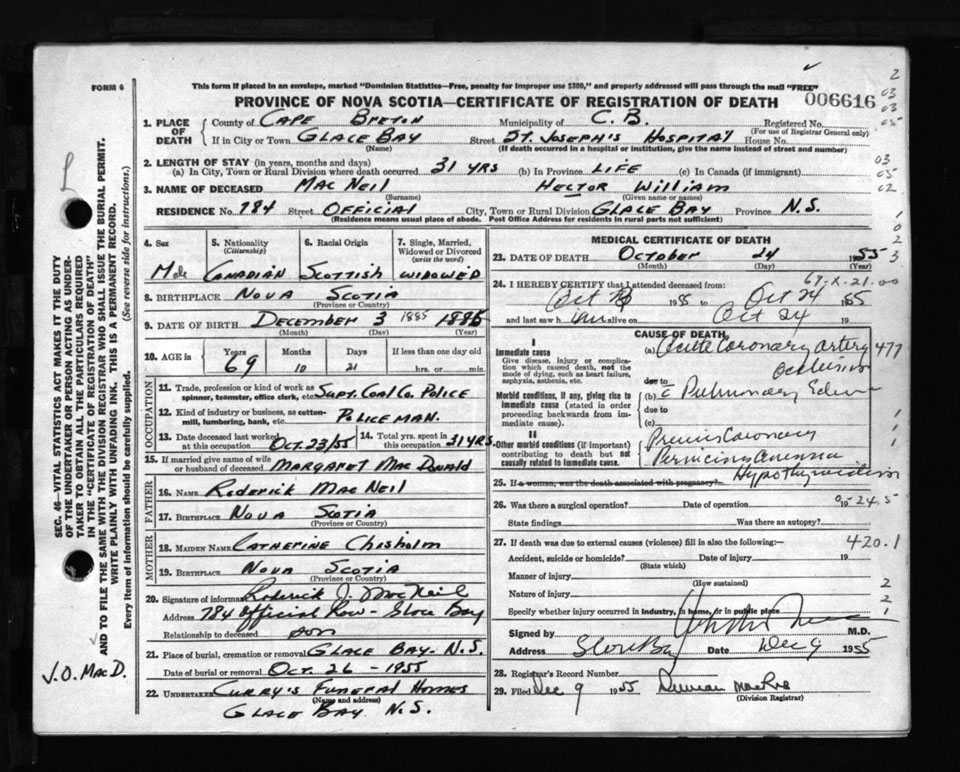 FORM 6
This form if placed in an envelope, marked "Dominion Statistics—Free, penalty for improper use $300," and properly addressed will pass through the mail "FREE"
PROVINCE OF NOVA SCOTIA—CERTIFICATE OF REGISTRATION OF DEATH
006616
1. PLACE OF DEATH County of CAPE BRETON Municipality of C. B. Registered No.
(For use of Registrar General only)
If in City or Town GLACE BAY Street ST. JOSEPH'S HOSPITAL House No.
(Name) (If death occurred in a hospital or institution, give the name instead of street and number)
2. LENGTH OF STAY (in years, months and days)
(a) In City, Town or Rural Division where death occurred 31 YRS (b) In Province LIFE (c) In Canada (if immigrant)
3. NAME OF DECEASED MAC NEIL HECTOR WILLIAM
(Surname) (Given name or names)
RESIDENCE No. 784 Street OFFICIAL City, Town or Rural Division GLACE BAY Province N.S.
(Residence means usual place of abode. Post Office Address for residents in rural parts not sufficient)
4. Sex 5. Nationality (Citizenship) 6. Racial Origin 7. Single, Married, Widowed or Divorced (write the word)
Male CANADIAN SCOTTISH WIDOWED
8. BIRTHPLACE NOVA SCOTIA
(Province or Country)
9. DATE OF BIRTH DECEMBER 3 1885 1886
(Month) (Day) (Year)
10. AGE in Years Months Days If less than one day old
69 10 21 hrs. or min.
OCCUPATION
11. Trade, profession or kind of work as spinner, teamster, office clerk, etc. SUPT. COAL CO. POLICE
12. Kind of industry or business, as cotton-mill, lumbering, bank, etc. POLICEMAN.
13. Date deceased last worked at this occupation OCT. 23/55 14. Total yrs. spent in this occupation 31 YRS.
15. If married give name of wife or husband of deceased MARGARET MAC DONALD
FATHER
16. NAME RODERICK MAC NEIL
17. BIRTHPLACE NOVA SCOTIA
(Province or Country)
MOTHER
18. MAIDEN NAME CATHERINE CHISHOLM
19. BIRTHPLACE NOVA SCOTIA
(Province or Country)
20. Signature of informant Roderick J. MacNeil
Address 784 Official Row - Glace Bay
Relationship to deceased son
21. Place of burial, cremation or removal GLACE BAY. N.S.
Date of burial or removal OCT. 26 - 1955
22. UNDERTAKER CURRY'S FUNERAL HOMES
(Name and address)
GLACE BAY N.S.
MEDICAL CERTIFICATE OF DEATH
23. DATE OF DEATH OCTOBER 24 1955
(Month) (Day) (Year)
24. I HEREBY CERTIFY that I attended deceased from: 69-X-21-00
Oct 1955 to Oct 24 1955
and last saw h im alive on Oct 24 19
CAUSE OF DEATH
I
Immediate cause
Give disease, injury or complication which caused death, not the mode of dying, such as heart failure, asphyxia, asthenia, etc.
(a) Acute Coronary artery occlusion 477
due to
Morbid conditions, if any, giving rise to immediate cause (stated in order proceeding backwards from immediate cause).
(b) c Pulmonary Edema
due to
(c)
II
Other morbid conditions (if important) contributing to death but not causally related to immediate cause.
Previous Coronary
Pernicious Anemia
Hypothyroidism
25. If a woman, was the death associated with pregnancy?
26. Was there a surgical operation? Date of operation 19
State findings Was there an autopsy?
27. If death was due to external causes (violence) fill in also the following:— 420.1
Accident, suicide or homicide? Date of injury 19
(State which)
Manner of injury
(How sustained)
Nature of injury
Specify whether injury occurred in industry, in home, or in public place
Signed by M.D.
Address Glace Bay Date Dec 9 1955
28. Registrar's Record Number
29. Filed Dec 9 1955 Duncan MacRae
(Division Registrar)
SEC. 46—VITAL STATISTICS ACT MAKES IT THE DUTY OF THE UNDERTAKER OR PERSON ACTING AS UNDERTAKER TO OBTAIN ALL THE PARTICULARS REQUIRED IN THE "CERTIFICATE OF REGISTRATION OF DEATH" AND TO FILE THE SAME WITH THE DIVISION REGISTRAR WHO SHALL ISSUE THE BURIAL PERMIT.
WRITE PLAINLY WITH UNFADING INK. THIS IS A PERMANENT RECORD.
Every item of information should be carefully supplied. (See reverse side for instructions.)
J.O. MAC D.
2
03
03
05
03
05
02
1
0
2
3
1
1
2
2
1